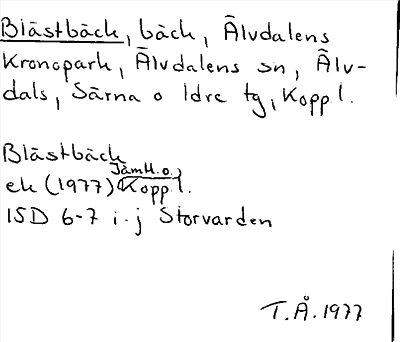 Blästbäck, bäck, Älvdalens
Kronopark, Älvdalens sn, Älv-
dals, Särna o Idre tg, Koppl.
Blästbäck
Jämtl. o.
ek (1977) Koppl.
15D 6-7 i-j Storvarden
T.Å. 1977